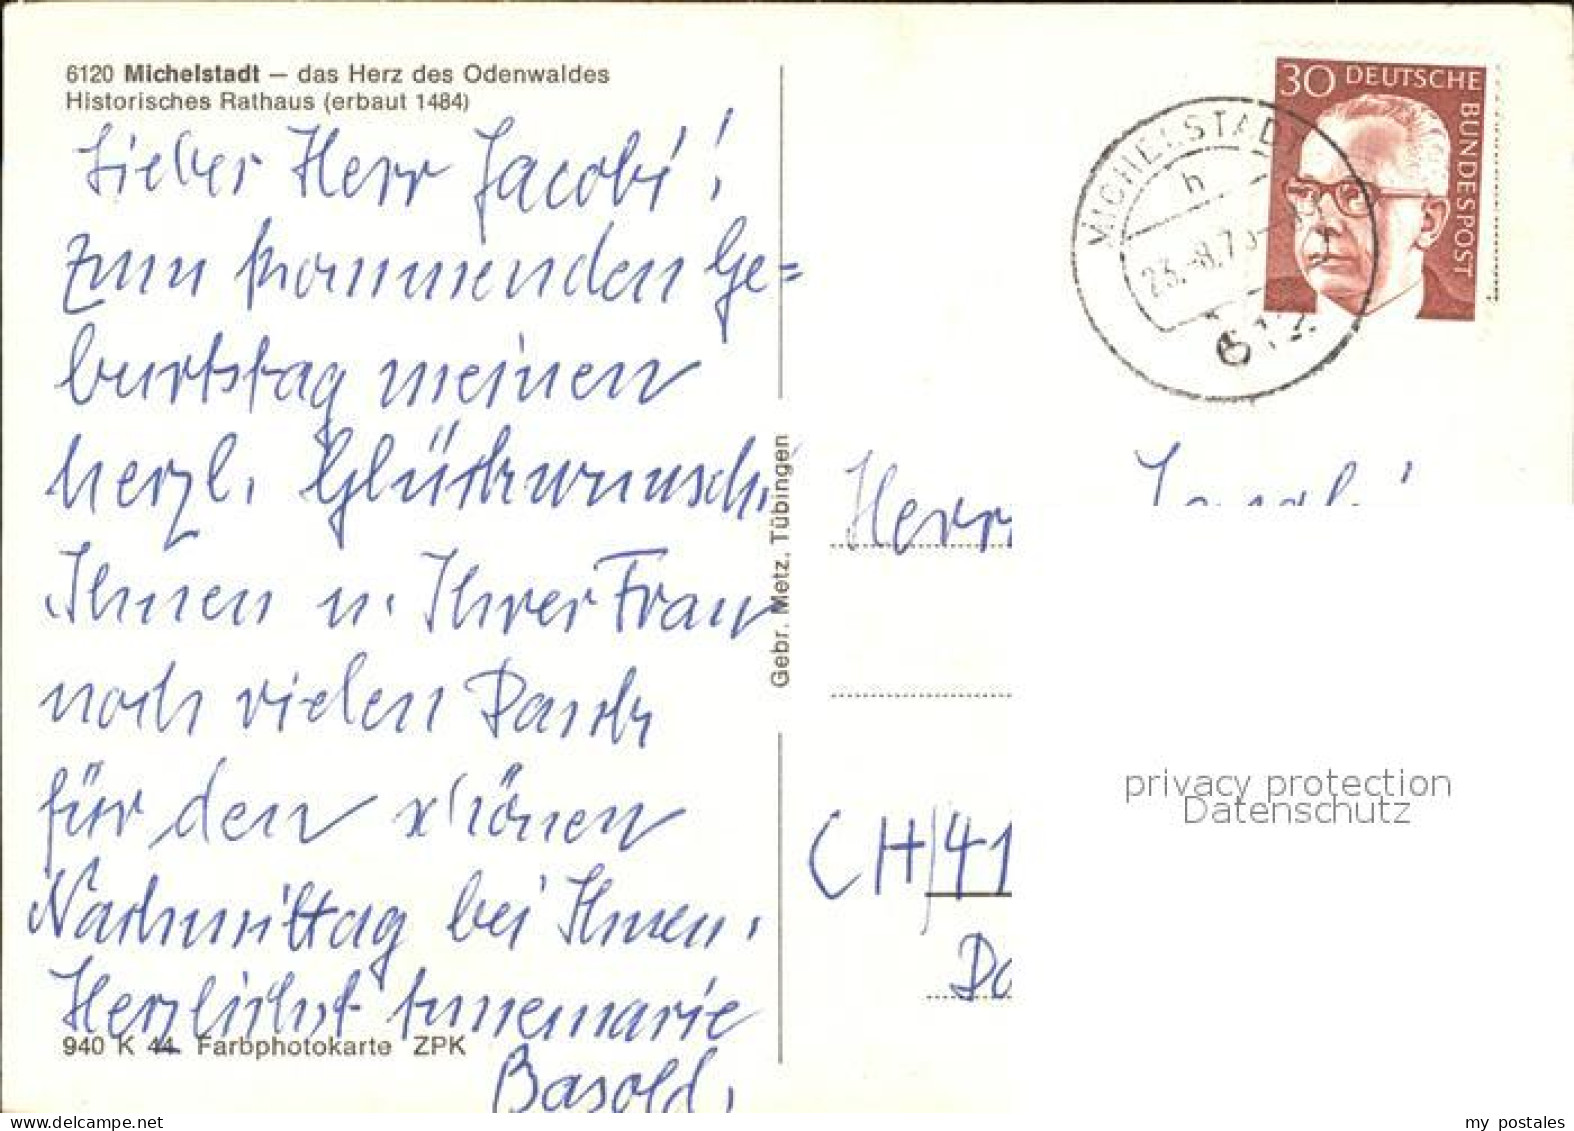 6120 Michelstadt – das Herz des Odenwaldes
Historisches Rathaus (erbaut 1484)
Lieber Herr Jacobi!
Zum kommenden Ge=
burtstag meinen
herzl. Glückwunsch.
Ihnen u. Ihrer Frau
noch vielen Dank
für den schönen
Nachmittag bei Ihnen.
Herzlichst Annemarie
Basold.
940 K 44 Farbphotokarte ZPK
Gebr. Metz, Tübingen
30 DEUTSCHE
BUNDESPOST
MICHELSTADT
h
23.-8.73
612
Herrn Jacobi
CH/41
Do
privacy protection
Datenschutz
www.delcampe.net
my postales